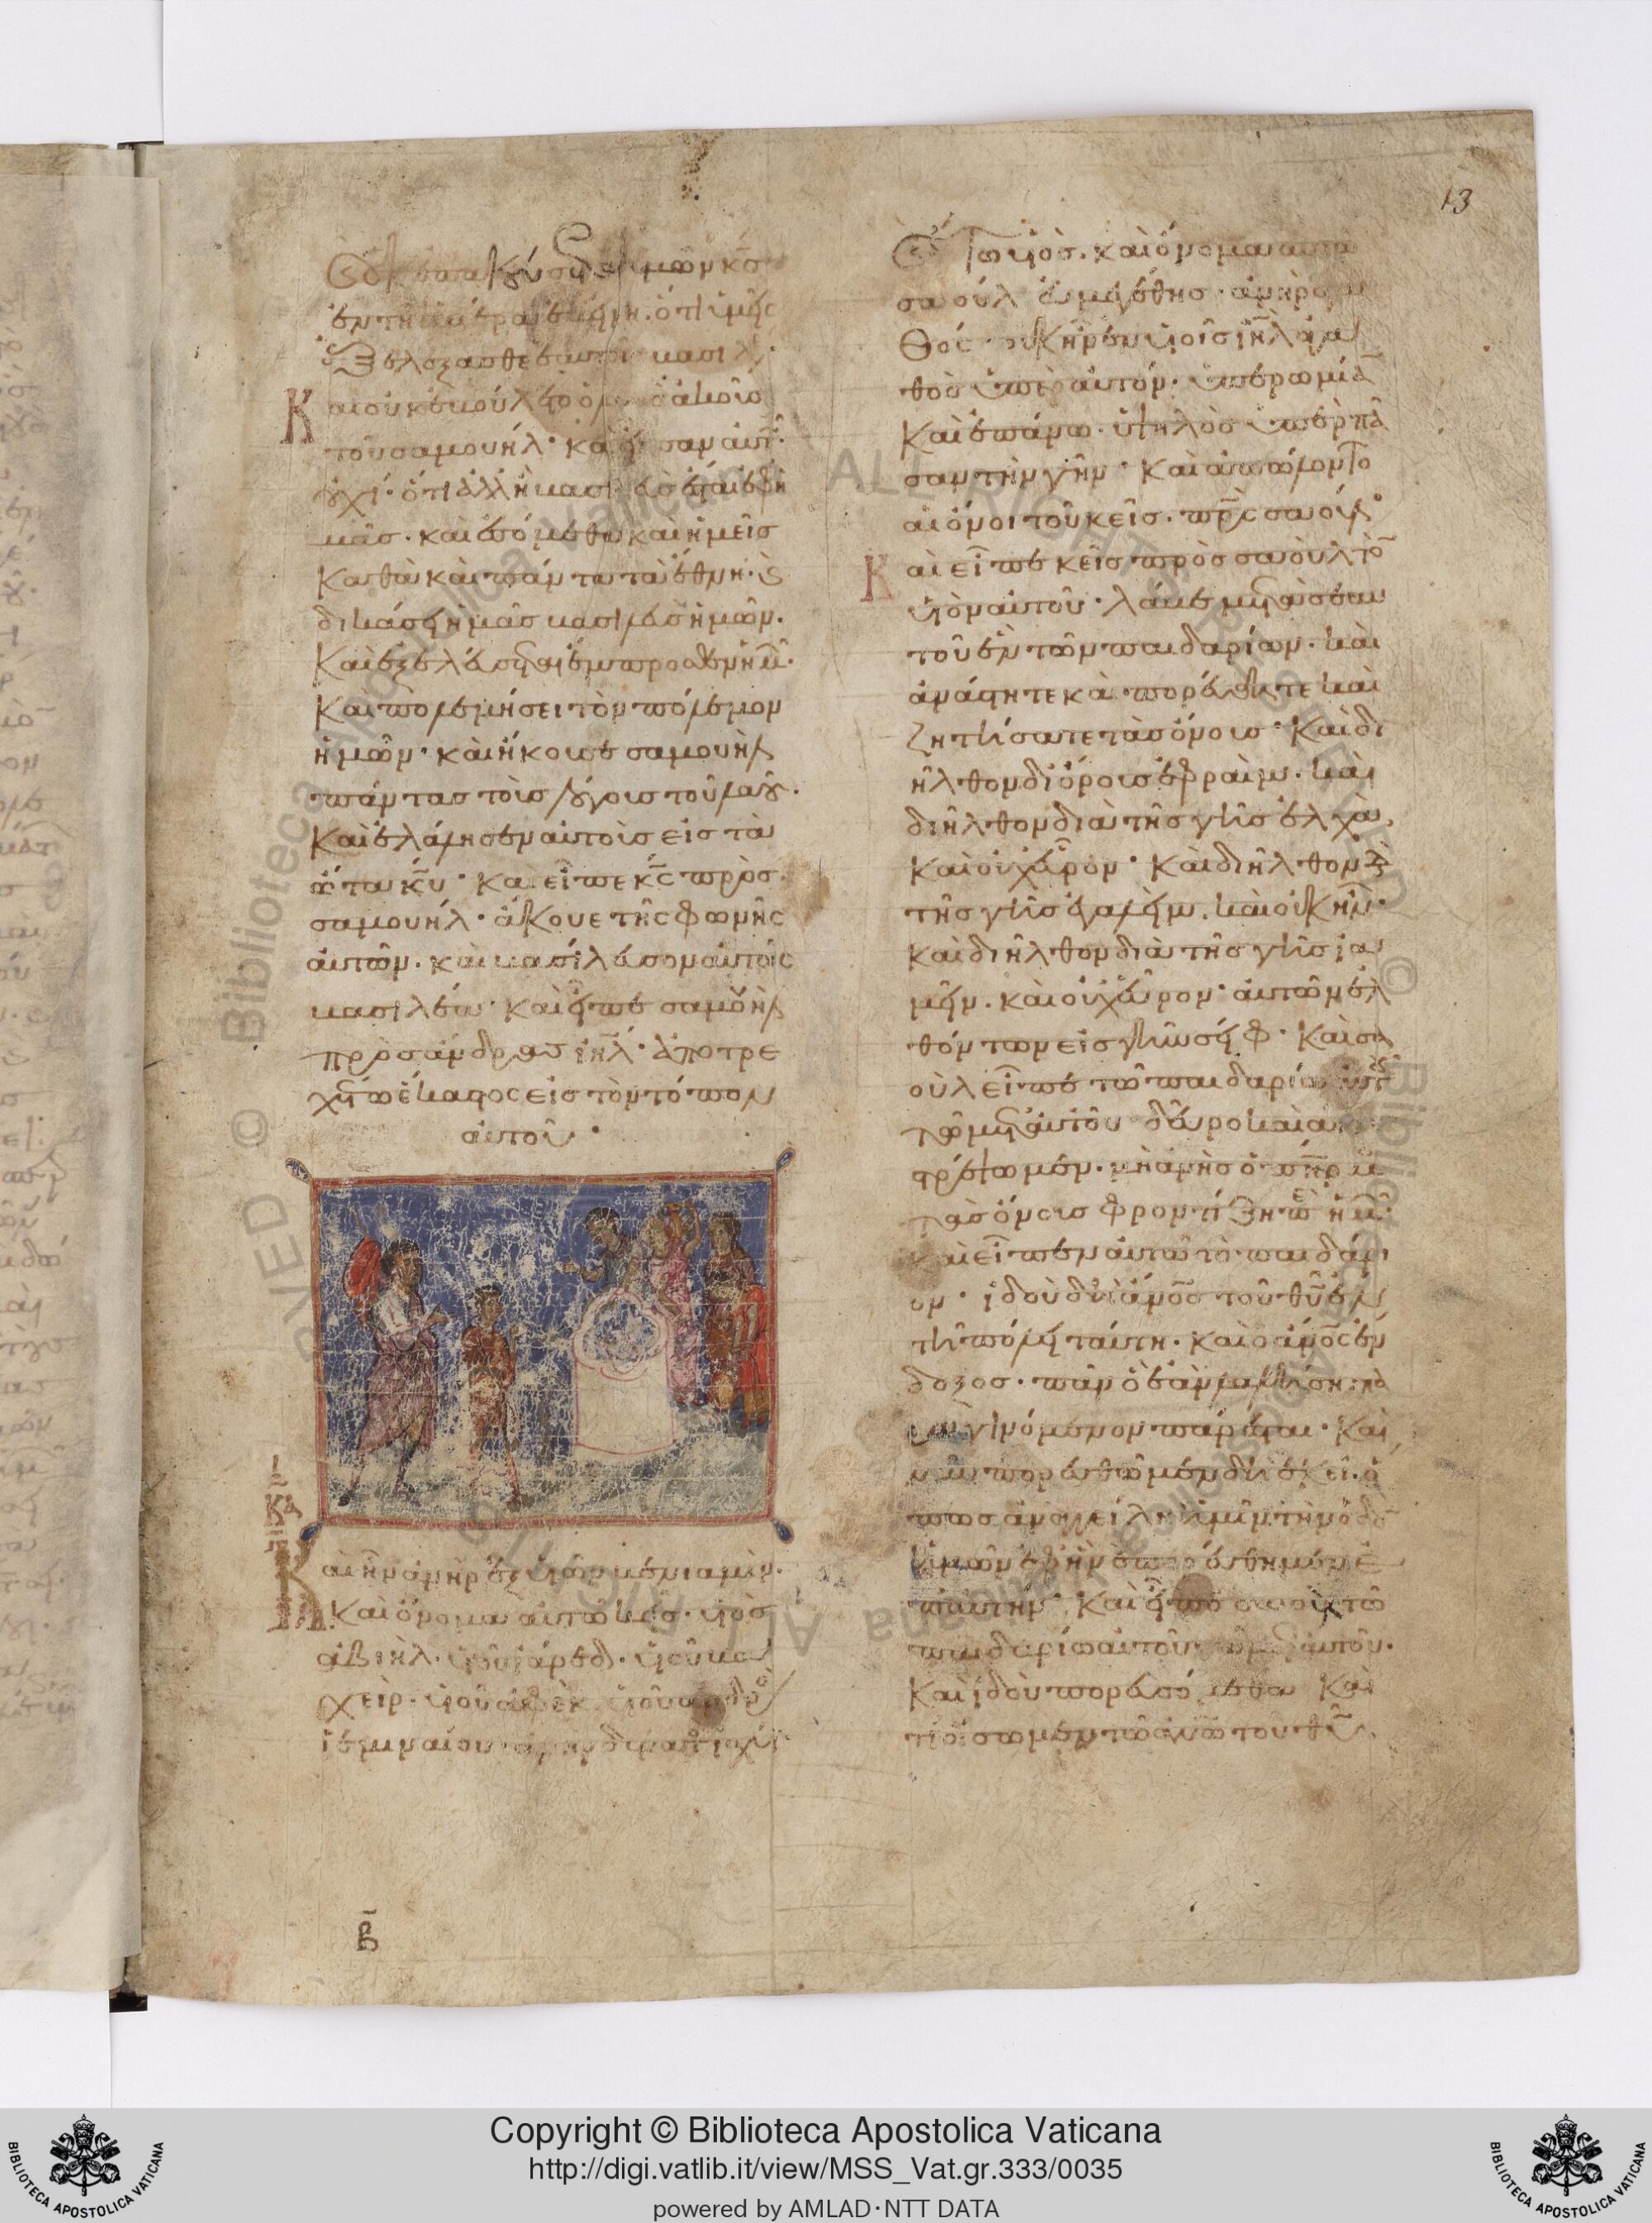 13
καὶ οὐκ ἐπακούσεται ὑμῶν κ̅ς̅
ἐν τῇ ἡμέρᾳ ἐκείνῃ. ὅτι ὑμεῖς
ἐξελέξασθε ἑαυτοῖς βασιλέα.
Καὶ οὐκ ἐβούλετο ὁ λαὸς ἀκοῦσαι
τοῦ σαμουήλ· καὶ εἶπαν αὐτῷ·
οὐχί· ὅτι ἀλλ' ἢ βασιλεὺς ἔσται ἐφ' ἡ
μᾶς. καὶ ἐσόμεθα καὶ ἡμεῖς
καθὰ καὶ πάντα τὰ ἔθνη· καὶ
δικάσει ἡμᾶς βασιλεὺς ἡμῶν.
καὶ ἐξελεύσεται ἔμπροσθεν ἡμῶν.
καὶ πολεμήσει τὸν πόλεμον
ἡμῶν· καὶ ἤκουσε σαμουὴλ
πάντας τοὺς λόγους τοῦ λαοῦ.
καὶ ἐλάλησεν αὐτοὺς εἰς τὰ
ὦτα κ̅υ̅· καὶ εἶπε κ̅ς̅ πρὸς
σαμουήλ· ἄκουε τῆς φωνῆς
αὐτῶν. καὶ βασίλευσον αὐτοῖς
βασιλέα· καὶ εἶπε σαμουὴλ
πρὸς ἄνδρας ι̅η̅λ̅· ἀποτρε
χέτω ἕκαστος εἰς τὸν τόπον
αὐτοῦ·
Καὶ ἦν ἀνὴρ ἐξ υἱῶν βενιαμίν.
καὶ ὄνομα αὐτῷ κείς· υἱὸς
ἀβιήλ. υἱοῦ ἀρέδ. υἱοῦ βα
χείρ. υἱοῦ ἀφὲκ υἱοῦ ἀνδρὸς
ἰεμιναίου· ἀνὴρ δυνατὸς ἰσχύϊ
β̅
καὶ τούτῳ υἱὸς. καὶ ὄνομα αὐτῷ
σαοὺλ εὐμεγέθης· ἀνὴρ ἀγα
θός· καὶ οὐκ ἦν ἐν υἱοῖς ι̅η̅λ̅ ἀγα
θὸς ὑπὲρ αὐτόν· ὑπὲρ ὠμίαν
καὶ ἐπάνω. ὑψηλὸς ὑπὲρ πᾶ
σαν τὴν γῆν· καὶ ἀπώλοντο
αἱ ὄνοι τοῦ κεῖς. π̅ρ̅ς̅ σαούλ·
Καὶ εἶπε κεῖς πρὸς σαοὺλ τὸν
υἱὸν αὐτοῦ· λάβε μετὰ σεαυ
τοῦ ἓν τῶν παιδαρίων. καὶ
ἀνάστητε καὶ πορεύθητε καὶ
ζητήσατε τὰς ὄνους· καὶ δι
ῆλθον δι' ὄρους ἐφραίμ. καὶ
διῆλθον διὰ τῆς γῆς ἐλχὰ
καὶ οὐχ εὗρον· καὶ διῆλθον διὰ
τῆς γῆς ἐγαλείμ. καὶ οὐκ ἦν·
καὶ διῆλθον διὰ τῆς γῆς ἰα
μείν. καὶ οὐχ εὗρον· αὐτῶν ἐλ
θόντων εἰς γῆν σείφ. καὶ σα
οὺλ εἶπε τῷ παιδαρίῳ αὐτοῦ
τῷ μετ' αὐτοῦ δεῦρο καὶ ἀνα
στρέψωμεν. μὴ ἀνεὶς ὁ π̅η̅ρ̅ μου
τὰς ὄνους φροντίζῃ τὰ περὶ ἡμῶν·
καὶ εἶπεν αὐτῷ τὸ παιδάρι
ον· ἰδοὺ δὴ ἄ̅ν̅ο̅ς̅ τοῦ θ̅υ̅ ἐν
τῇ πόλει ταύτῃ. καὶ ὁ ἄ̅ν̅ο̅ς̅ ἔν
δοξος. πᾶν ὃ ἐὰν λαλήσῃ πα
ραγινόμενον παρέσται· καὶ
νῦν πορευθῶμεν δὴ ἐκεῖ. ὅ
πως ἀναγγείλῃ ἡμῖν τὴν ὁδὸν
ἡμῶν ἐφ' ἣν ἐπορεύθημεν ἐ
π' αὐτήν· καὶ εἶπε σαοὺλ τῷ
παιδαρίῳ αὐτοῦ τῷ μετ' αὐτοῦ.
καὶ ἰδοὺ πορευσόμεθα καὶ
τί οἴσωμεν τῷ ἀ̅ν̅ω̅ τοῦ θ̅υ̅
Copyright © Biblioteca Apostolica Vaticana
http://digi.vatlib.it/view/MSS_Vat.gr.333/0035
powered by AMLAD·NTT DATA
BIBLIOTECA APOSTOLICA VATICANA
BIBLIOTECA APOSTOLICA VATICANA